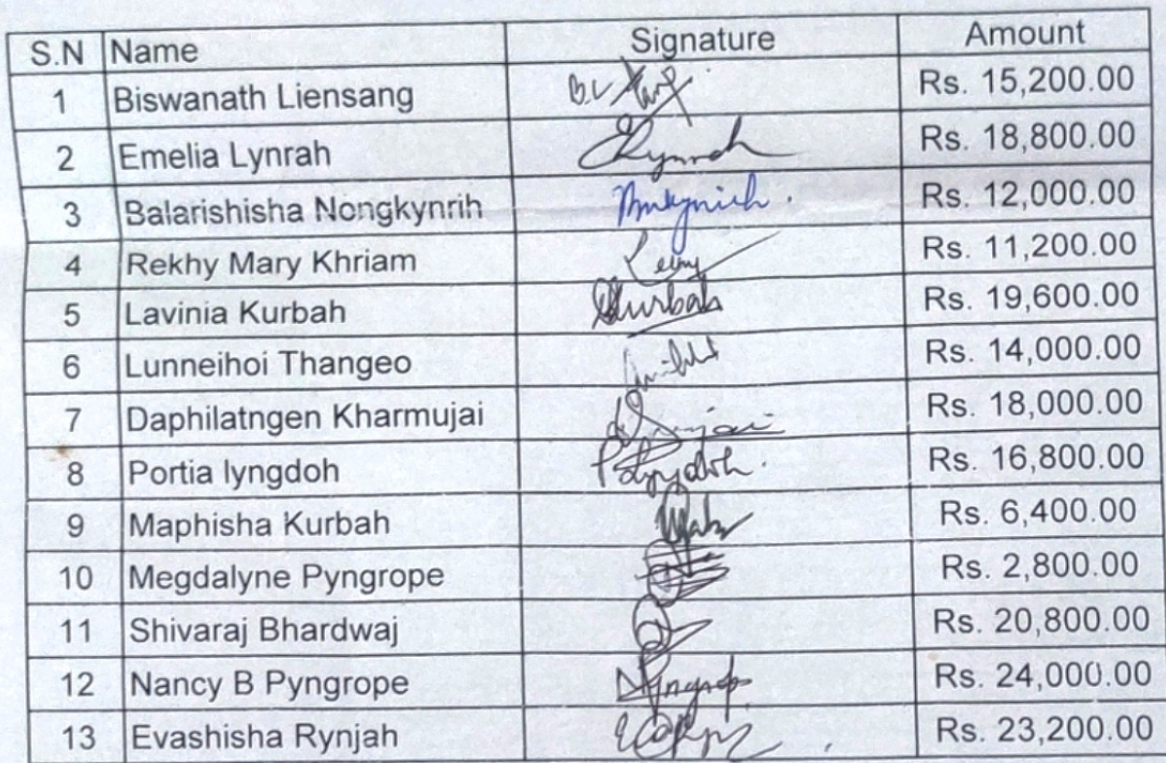 S.N Name Signature Amount
1 Biswanath Liensang Rs. 15,200.00
2 Emelia Lynrah Elynrah Rs. 18,800.00
3 Balarishisha Nongkynrih Rs. 12,000.00
4 Rekhy Mary Khriam Rs. 11,200.00
5 Lavinia Kurbah Lkurbah Rs. 19,600.00
6 Lunneihoi Thangeo Rs. 14,000.00
7 Daphilatngen Kharmujai Rs. 18,000.00
8 Portia lyngdoh Rs. 16,800.00
9 Maphisha Kurbah Rs. 6,400.00
10 Megdalyne Pyngrope Rs. 2,800.00
11 Shivaraj Bhardwaj Rs. 20,800.00
12 Nancy B Pyngrope Rs. 24,000.00
13 Evashisha Rynjah Rs. 23,200.00